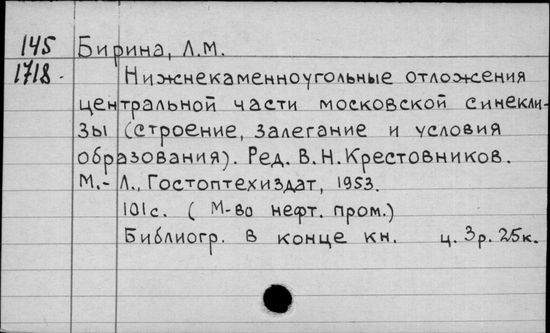 145 Бирина, Л.М.
1718. Нижнекаменноугольные отложения
центральной части московской синекли-
зы (строение, залегание и условия
образования). Ред. В.Н.Крестовников.
М.-Л., Гостоптехиздат, 1953.
101с. (М-во нефт. пром.)
Библиогр. в конце кн. ц. 3р. 25к.